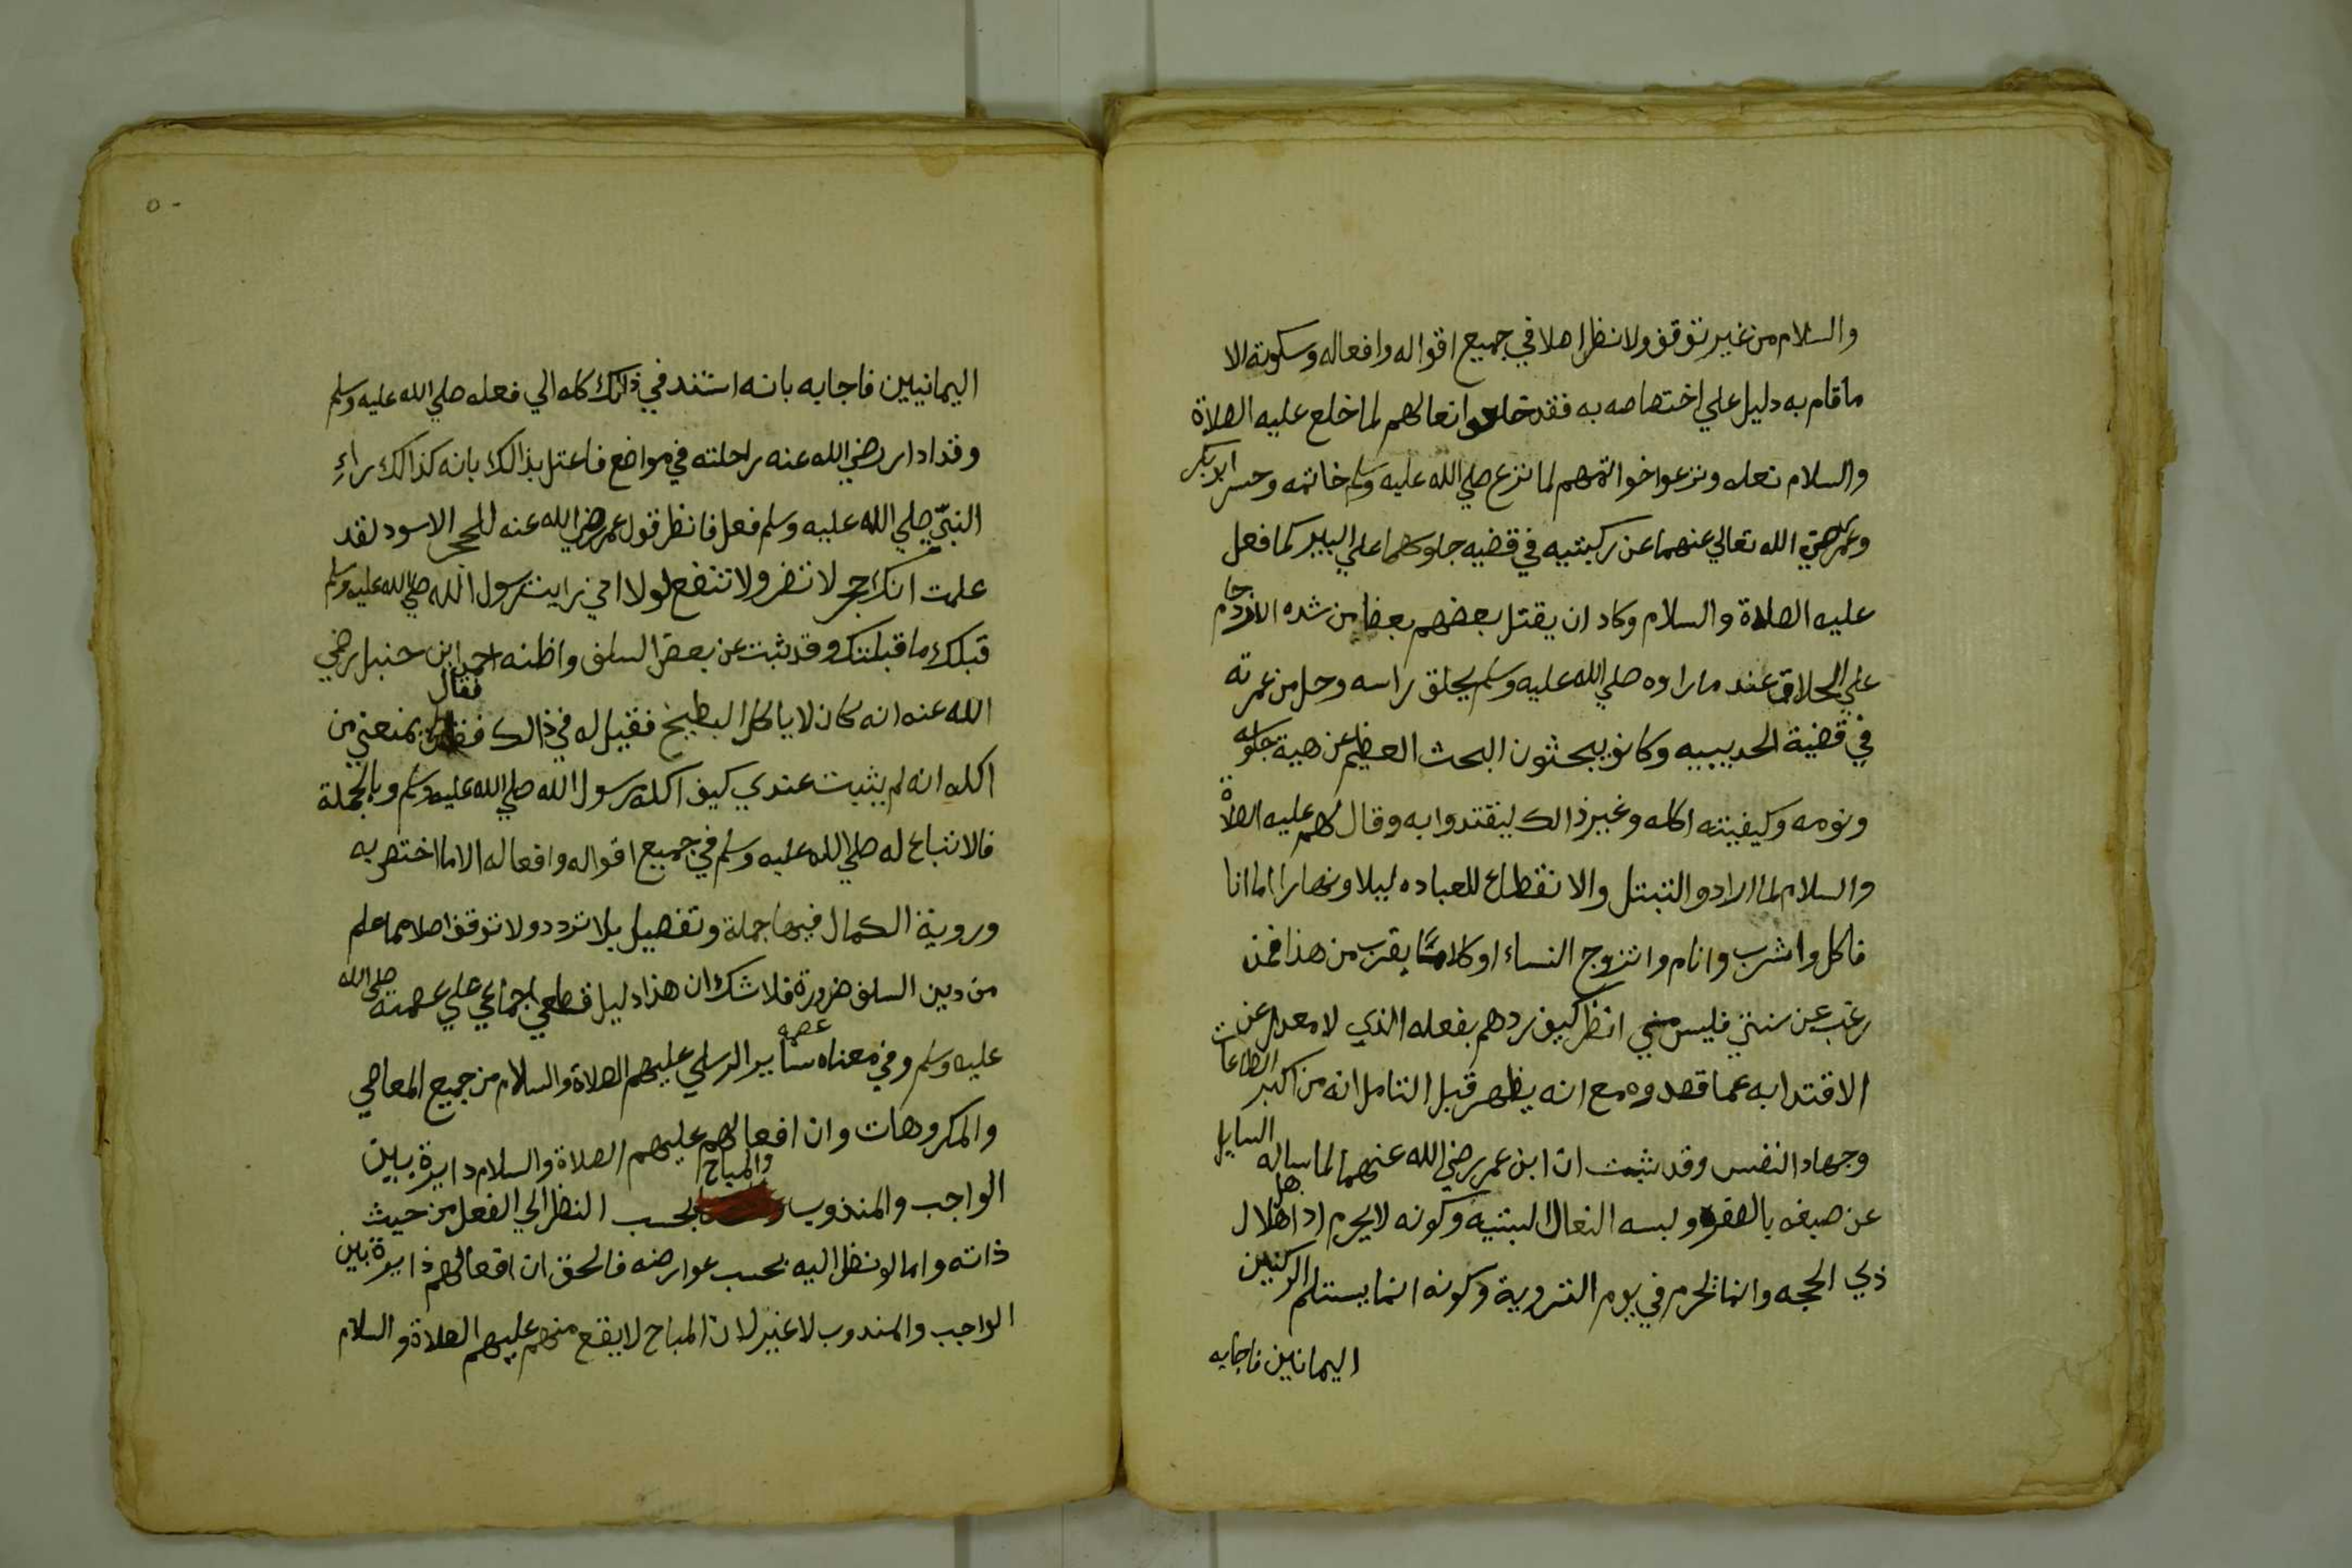 والسلام من غير توقف ولا نظر اصلا في جميع اقواله وافعاله وسكوته الا
ما قام به دليل علي اختصاصه به فقد خلعوا نعالهم لما خلع عليه الصلاة
والسلام نعله ونزعوا خواتمهم لما نزع صلي الله عليه وسلم خاتمه وحسر ابو بكر
وعمر رضي الله تعالي عنهما عن ركبتيه في قضيه جلوسهما علي البير كما فعل
عليه الصلاة والسلام وكاد ان يقتل بعضهم بعضا من شده الازدحام
علي الحلاق عند ما راوه صلي الله عليه وسلم يحلق راسه وحل من عمرته
في قضية الحديبيه وكانو يبحثون البحث العظيم عن هيية جلوسه
ونومه وكيفيته اكله وغير ذالك ليقتدوا به وقال لهم عليه الصلاة
والسلام لما ارادو التبتل والانقطاع للعباده ليلا ونهارا اما انا
فاكل واشرب وانام واتزوج النساء او كلاما يقرب من هذا فمن
رغب عن سنتي فليس مني انظر كيف ردهم بفعله الذي لا معدل عن
الاقتدا به عما قصدوه مع انه يظهر قبل التامل انه من اكبر الطاعات
وجهاد النفس وقد ثبت ان ابن عمر رضي الله عنهما لما ساله السايل
عن صبغه بالصفره ولبسه النعال السبتيه وكونه لا يحرم اذا هل هلال
ذي الحجه وانما يحرم في يوم التروية وكونه انما يستلم الركنين
اليمانين فاجابه
٥٠
اليمانيين فاجابه بانه استند في ذالك كله الي فعله صلي الله عليه وسلم
وقد ادار رضي الله عنه راحلته في مواضع فاعتل بذالك بانه كذالك راء
النبيّ صلي الله عليه وسلم فعل فانظر قول عمر رضي الله عنه للحجر الاسود لقد
علمت انك حجر لا تضر ولا تنفع لولا اني رايت رسول الله صلي الله عليه وسلم
قبلك ما قبلتك وقد ثبت عن بعض السلف واظنه احمد ابن حنبل رضي
الله عنه انه كان لا ياكل البطيخ فقيل له في ذالك فقال يمنعني من
اكله انه لم يثبت عندي كيف اكله رسول الله صلي الله عليه وسلم وبالجملة
فالاتباع له صلي الله عليه وسلم في جميع اقواله وافعاله الا ما اختص به
وروية الكمال فيها جملة وتفصيل بلا تردد ولا توقف اصلا مما علم
من دين السلف ضرورة فلا شك ان هذا دليل قطعي اجماعي علي عصمته صلي الله
عليه وسلم وفي معناه عصمه ساير الرسلي عليهم الصلاة والسلام من جميع المعاصي
والمكروهات وان افعالهم عليهم الصلاة والسلام دايرة بين
الواجب والمندوب والمباح بحسب النظر الي الفعل من حيث
ذاته واما لو نظر اليه بحسب عوارضه فالحق ان افعالهم دايرة بين
الواجب والمندوب لا غير لان المباح لا يقع منهم عليهم الصلاة والسلام